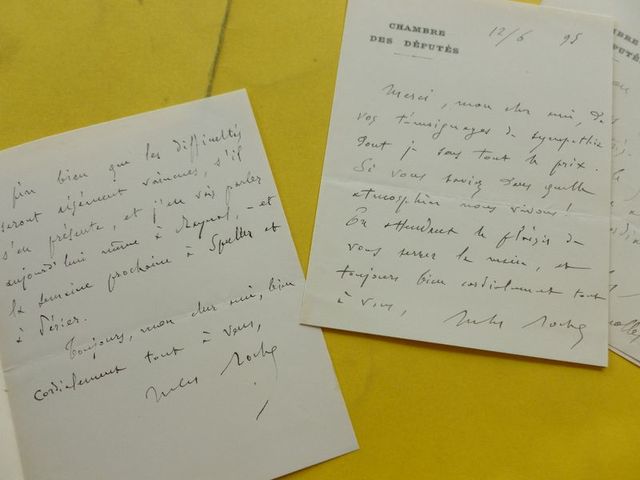 fin bien que les difficultés
seront aisément vaincues, s'il
s'en présente, et j'en vais parler
aujourd'hui même à Raynal, – et
la semaine prochaine à Spuller et
à Périer.
Toujours, mon cher ami, bien
cordialement tout à vous,
Jules Roche
CHAMBRE
DES DÉPUTÉS
12/6 95
Merci, mon cher ami, de
vos témoignages de sympathie
dont je sens tout le prix.
Si vous saviez dans quelle
atmosphère nous vivons !
En attendant le plaisir de
vous serrer la main, et
toujours bien cordialement tout
à vous,
Jules Roche